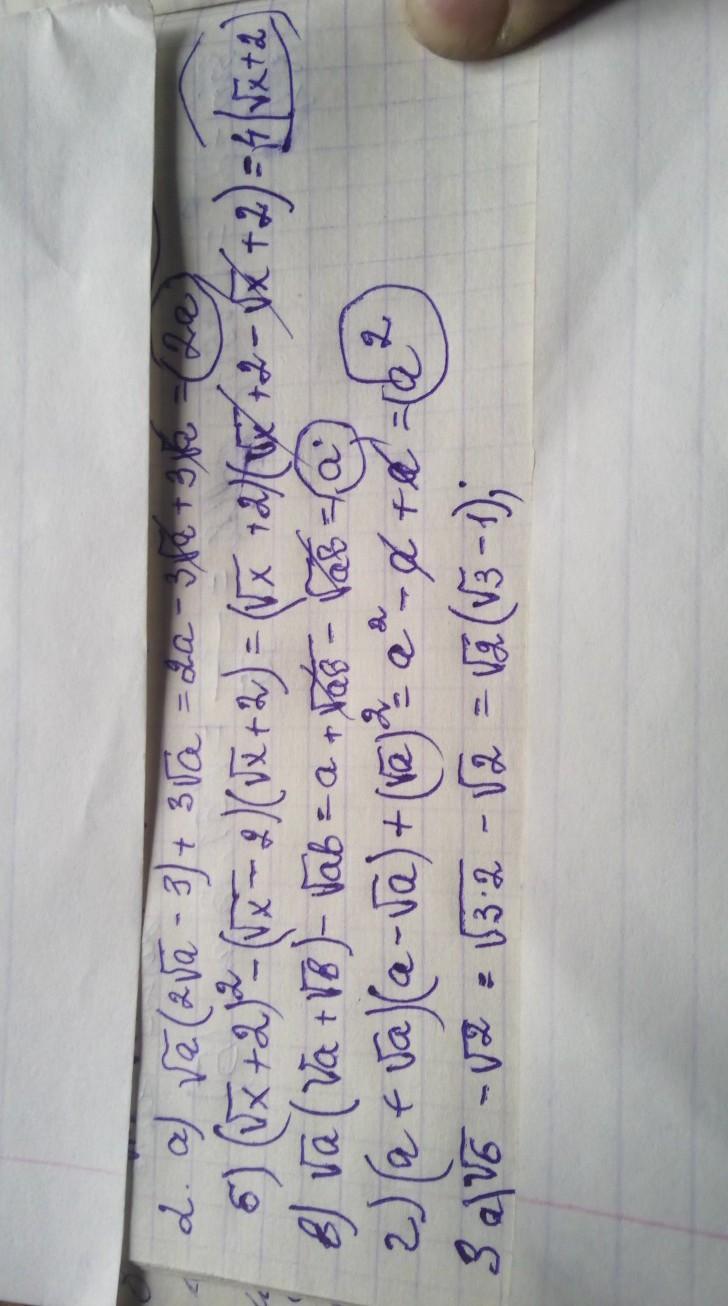 2. а) √a(2√a - 3) + 3√a = 2a - 3√a + 3√a = 2a
б) (√x + 2)² - (√x - 2)(√x + 2) = (√x + 2)(√x + 2 - √x + 2) = 4(√x + 2)
в) √a(√a + √b) - √ab = a + √ab - √ab = a
г) (a + √a)(a - √a) + (√a)² = a² - a + a = a²
3 а) √6 - √2 = √3·2 - √2 = √2(√3 - 1);